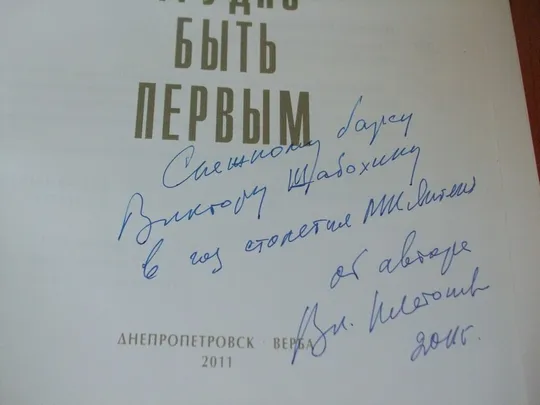 ТРУДНО
БЫТЬ
ПЕРВЫМ
Снежному барсу
Виктору Шабохину
в год столетия
от автора
Вл.
2011г.
ДНЕПРОПЕТРОВСК ВЕРБА
2011